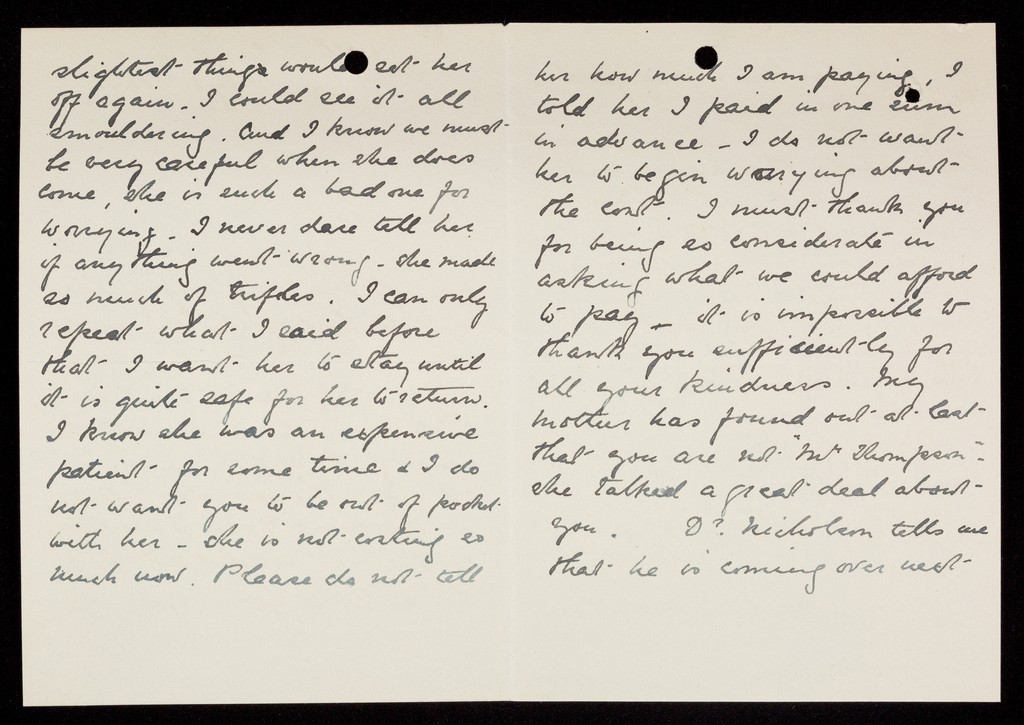 slightest things would set her
off again. I could see it all
smouldering. And I know we must
be very careful when she does
come, she is such a bad one for
worrying. I never dare tell her
if anything went wrong - she made
so much of trifles. I can only
repeat what I said before
that I want her to stay until
it is quite safe for her to return.
I know she was an expensive
patient for some time & I do
not want you to be out of pocket
with her - she is not costing so
much now. Please do not tell
her how much I am paying, I
told her I paid in one sum
in advance - I do not want
her to begin worrying about
the cost. I must thank you
for being so considerate in
asking what we could afford
to pay - it is impossible to
thank you sufficiently for
all your kindness. My
mother has found out at last
that you are not "Mr Thompson" -
she talked a great deal about
you. Dr. Nicholson tells me
that he is coming over next